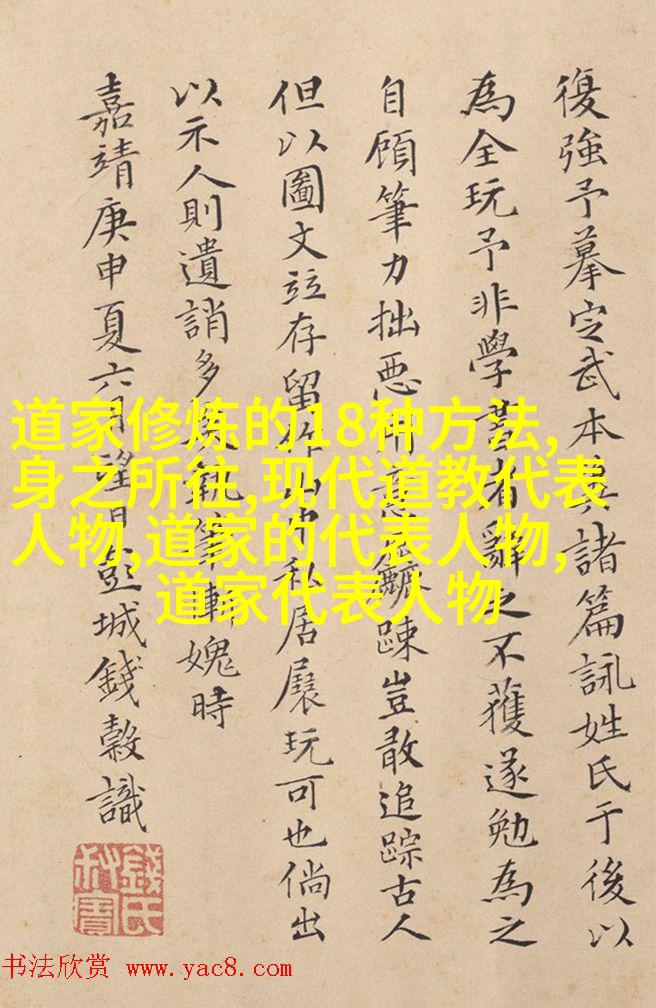 復強予摹定武本具諸篇詠姓氏于後以
為全玩予非學書者辭之不獲遂勉為之
自顧筆力拙惡用意麤踈豈敢追踪古人
但以圖文竝存留作山中私居展玩可也倘出
以示人則遺誚多矣執筆輙媿時
嘉靖庚申夏六月望日彭城錢榖識
錢氏叔寶
道家修炼的18种方法,
身之所往,现代道教代表
人物,道家的代表人物,
道家代表人物
书法欣赏 www.yac8.com